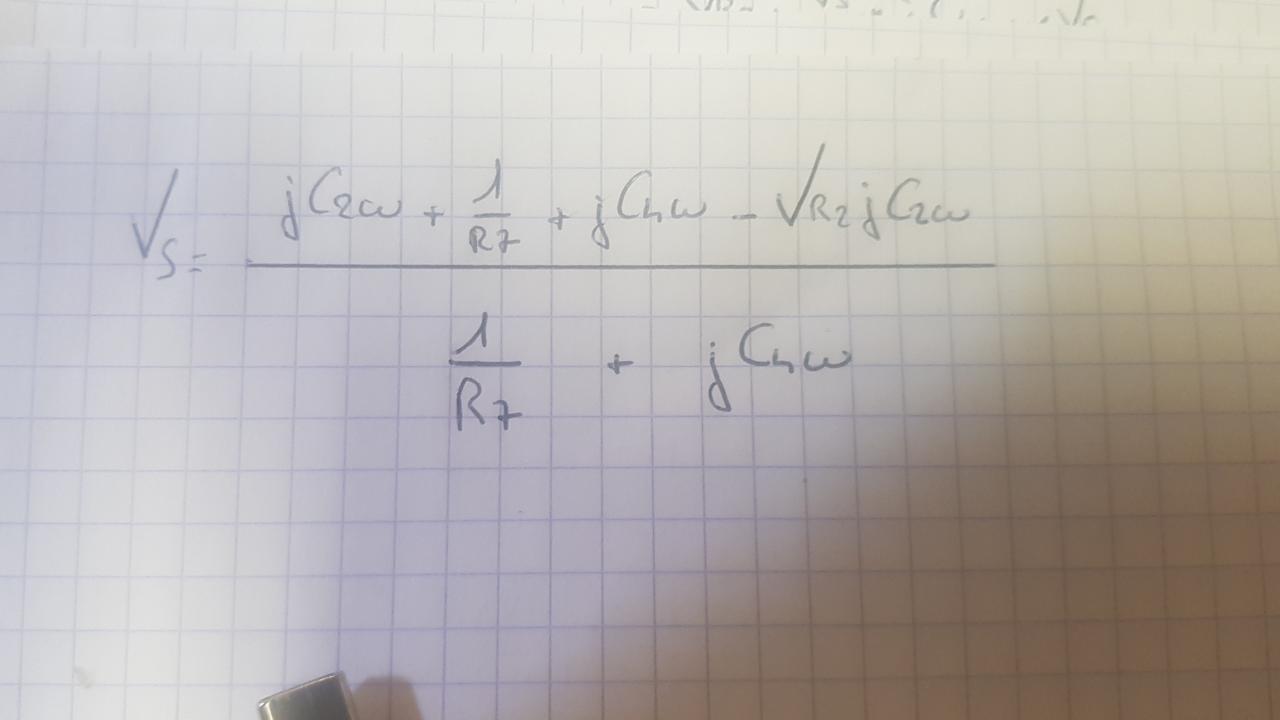 Vs = (jC2ω + 1/R7 + jC4ω - VR2jC2ω) / (1/R7 + jC4ω)